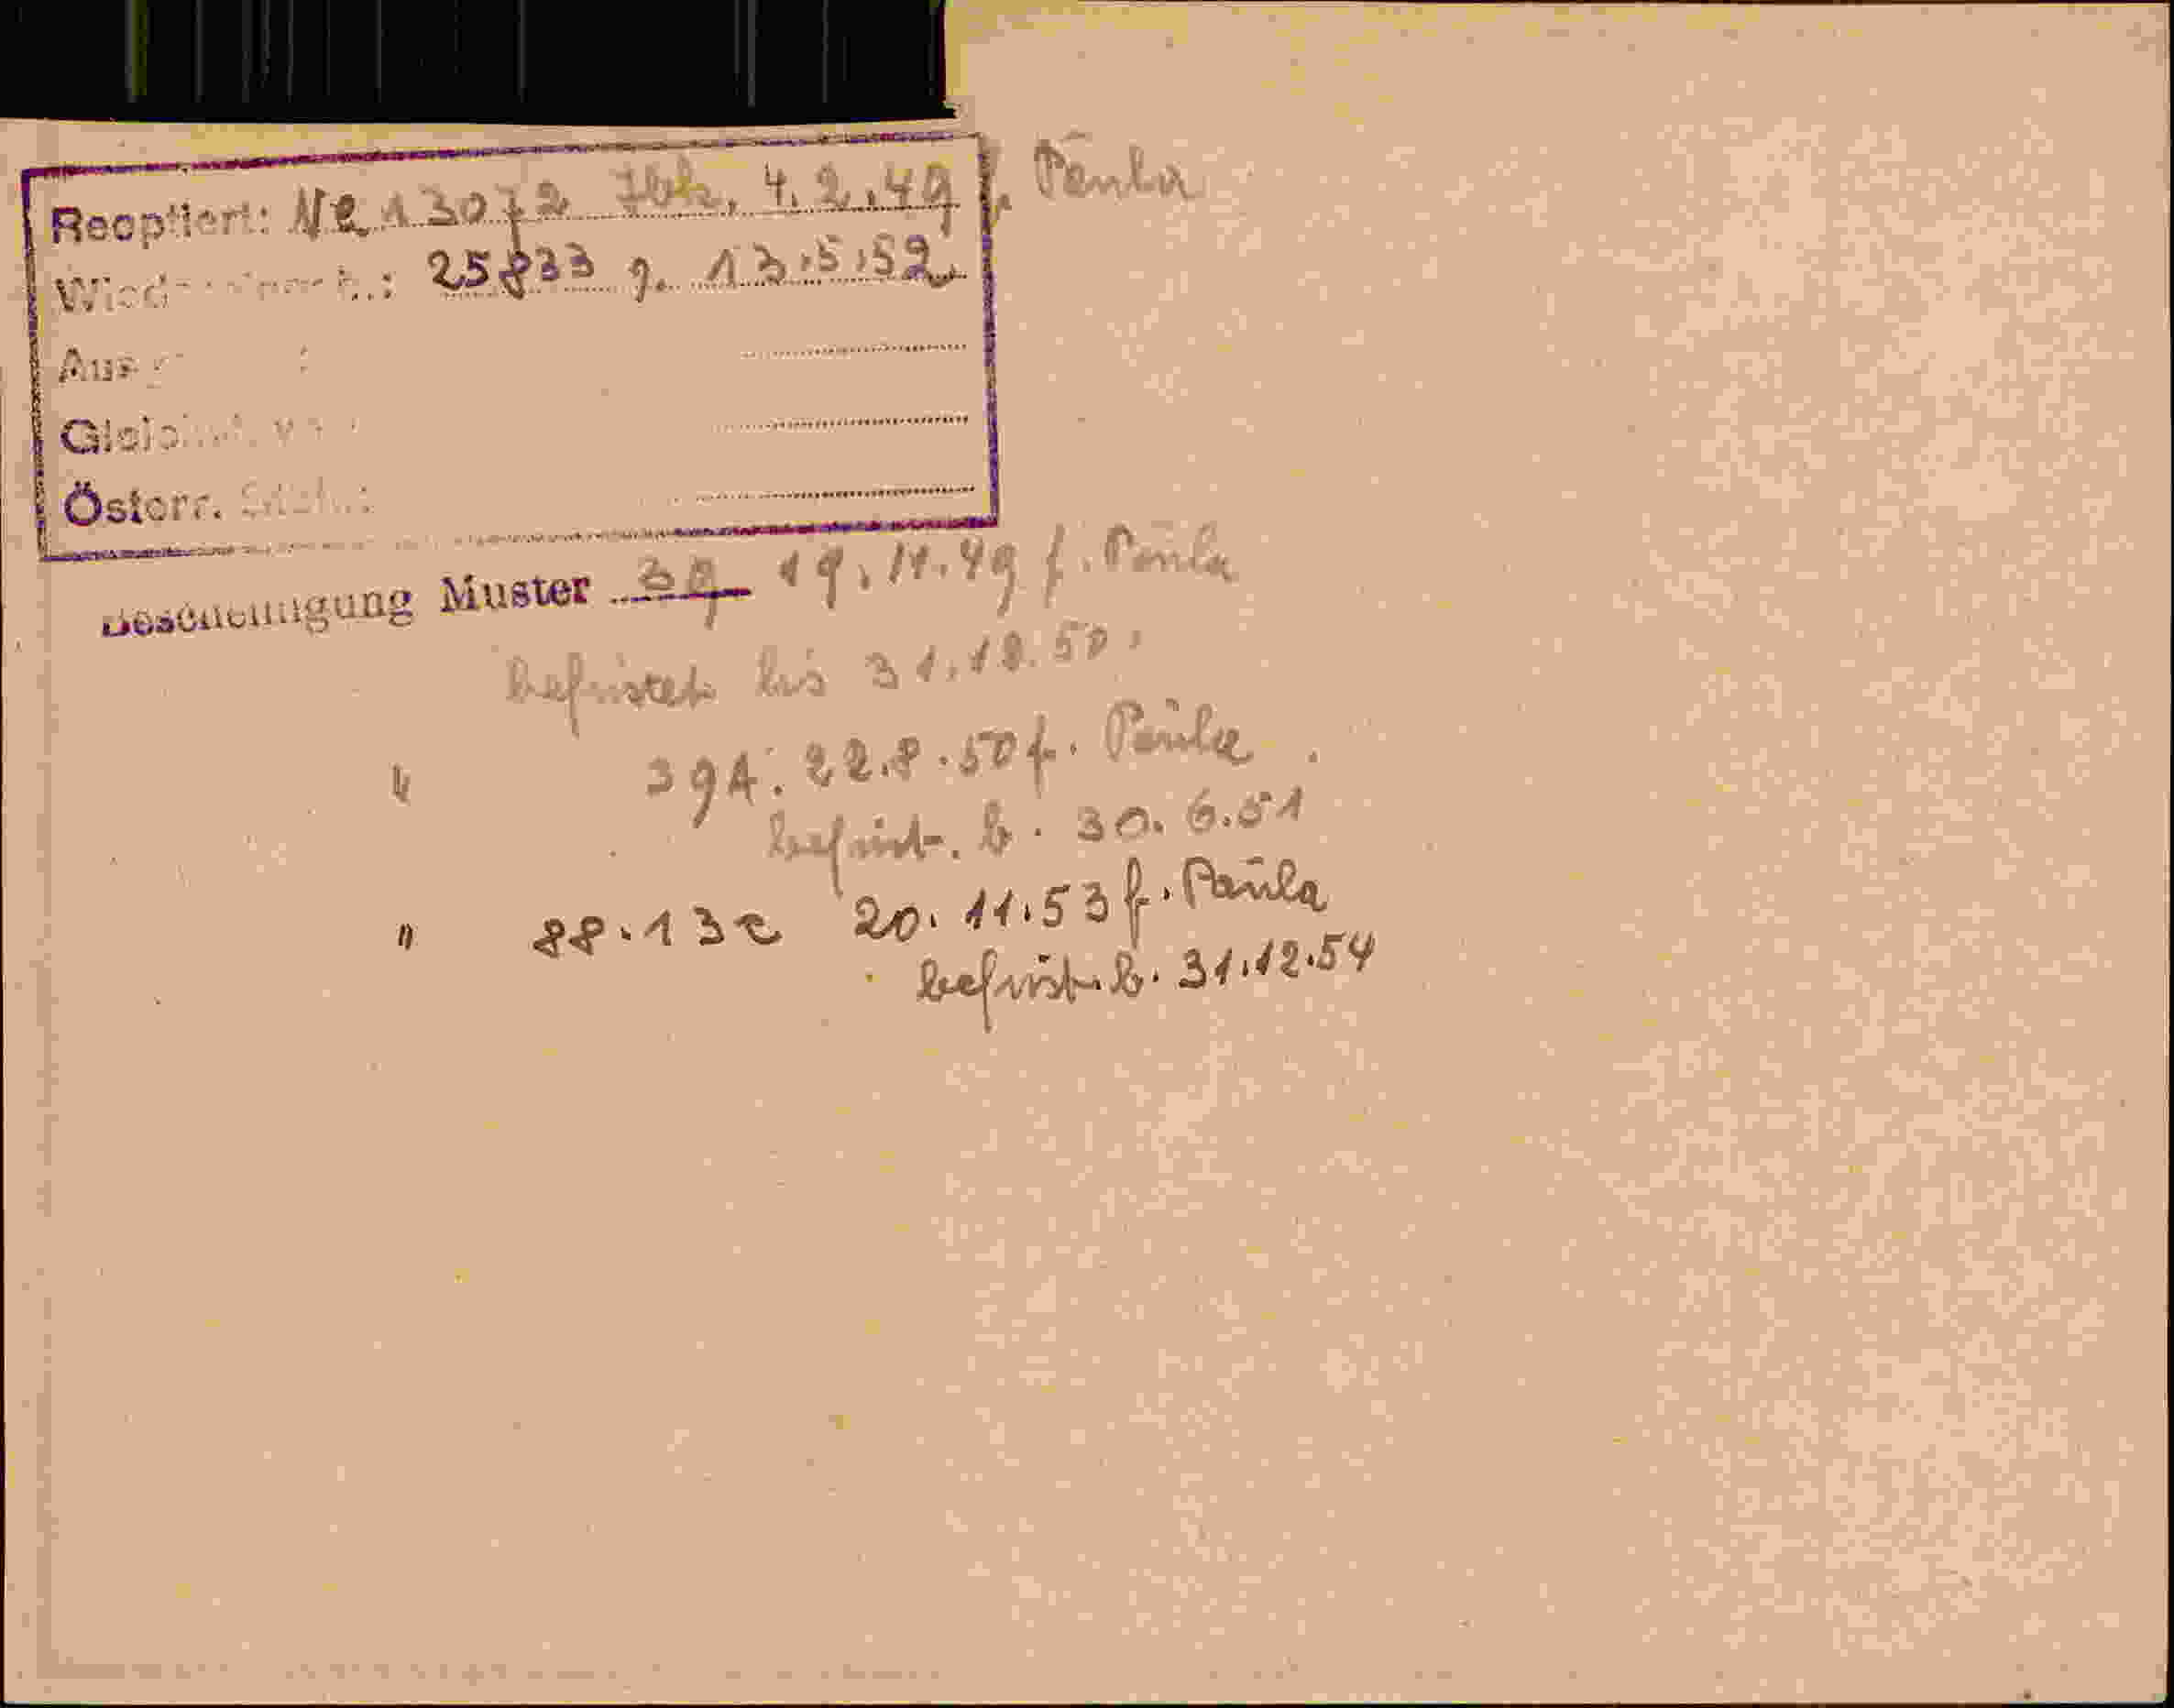 Reoptiert: Ne 13072 4.2.49 f. Paula
25833 g. 13.5.52.
Österr.
Bescheinigung Muster 39 19.11.49 f. Paula
befristet bis 31.12.50.
" 39A. 22.8.50 f. Paula
befrist. b. 30.6.51
" 88.13c 20.11.53 f. Paula
befrist. b. 31.12.54